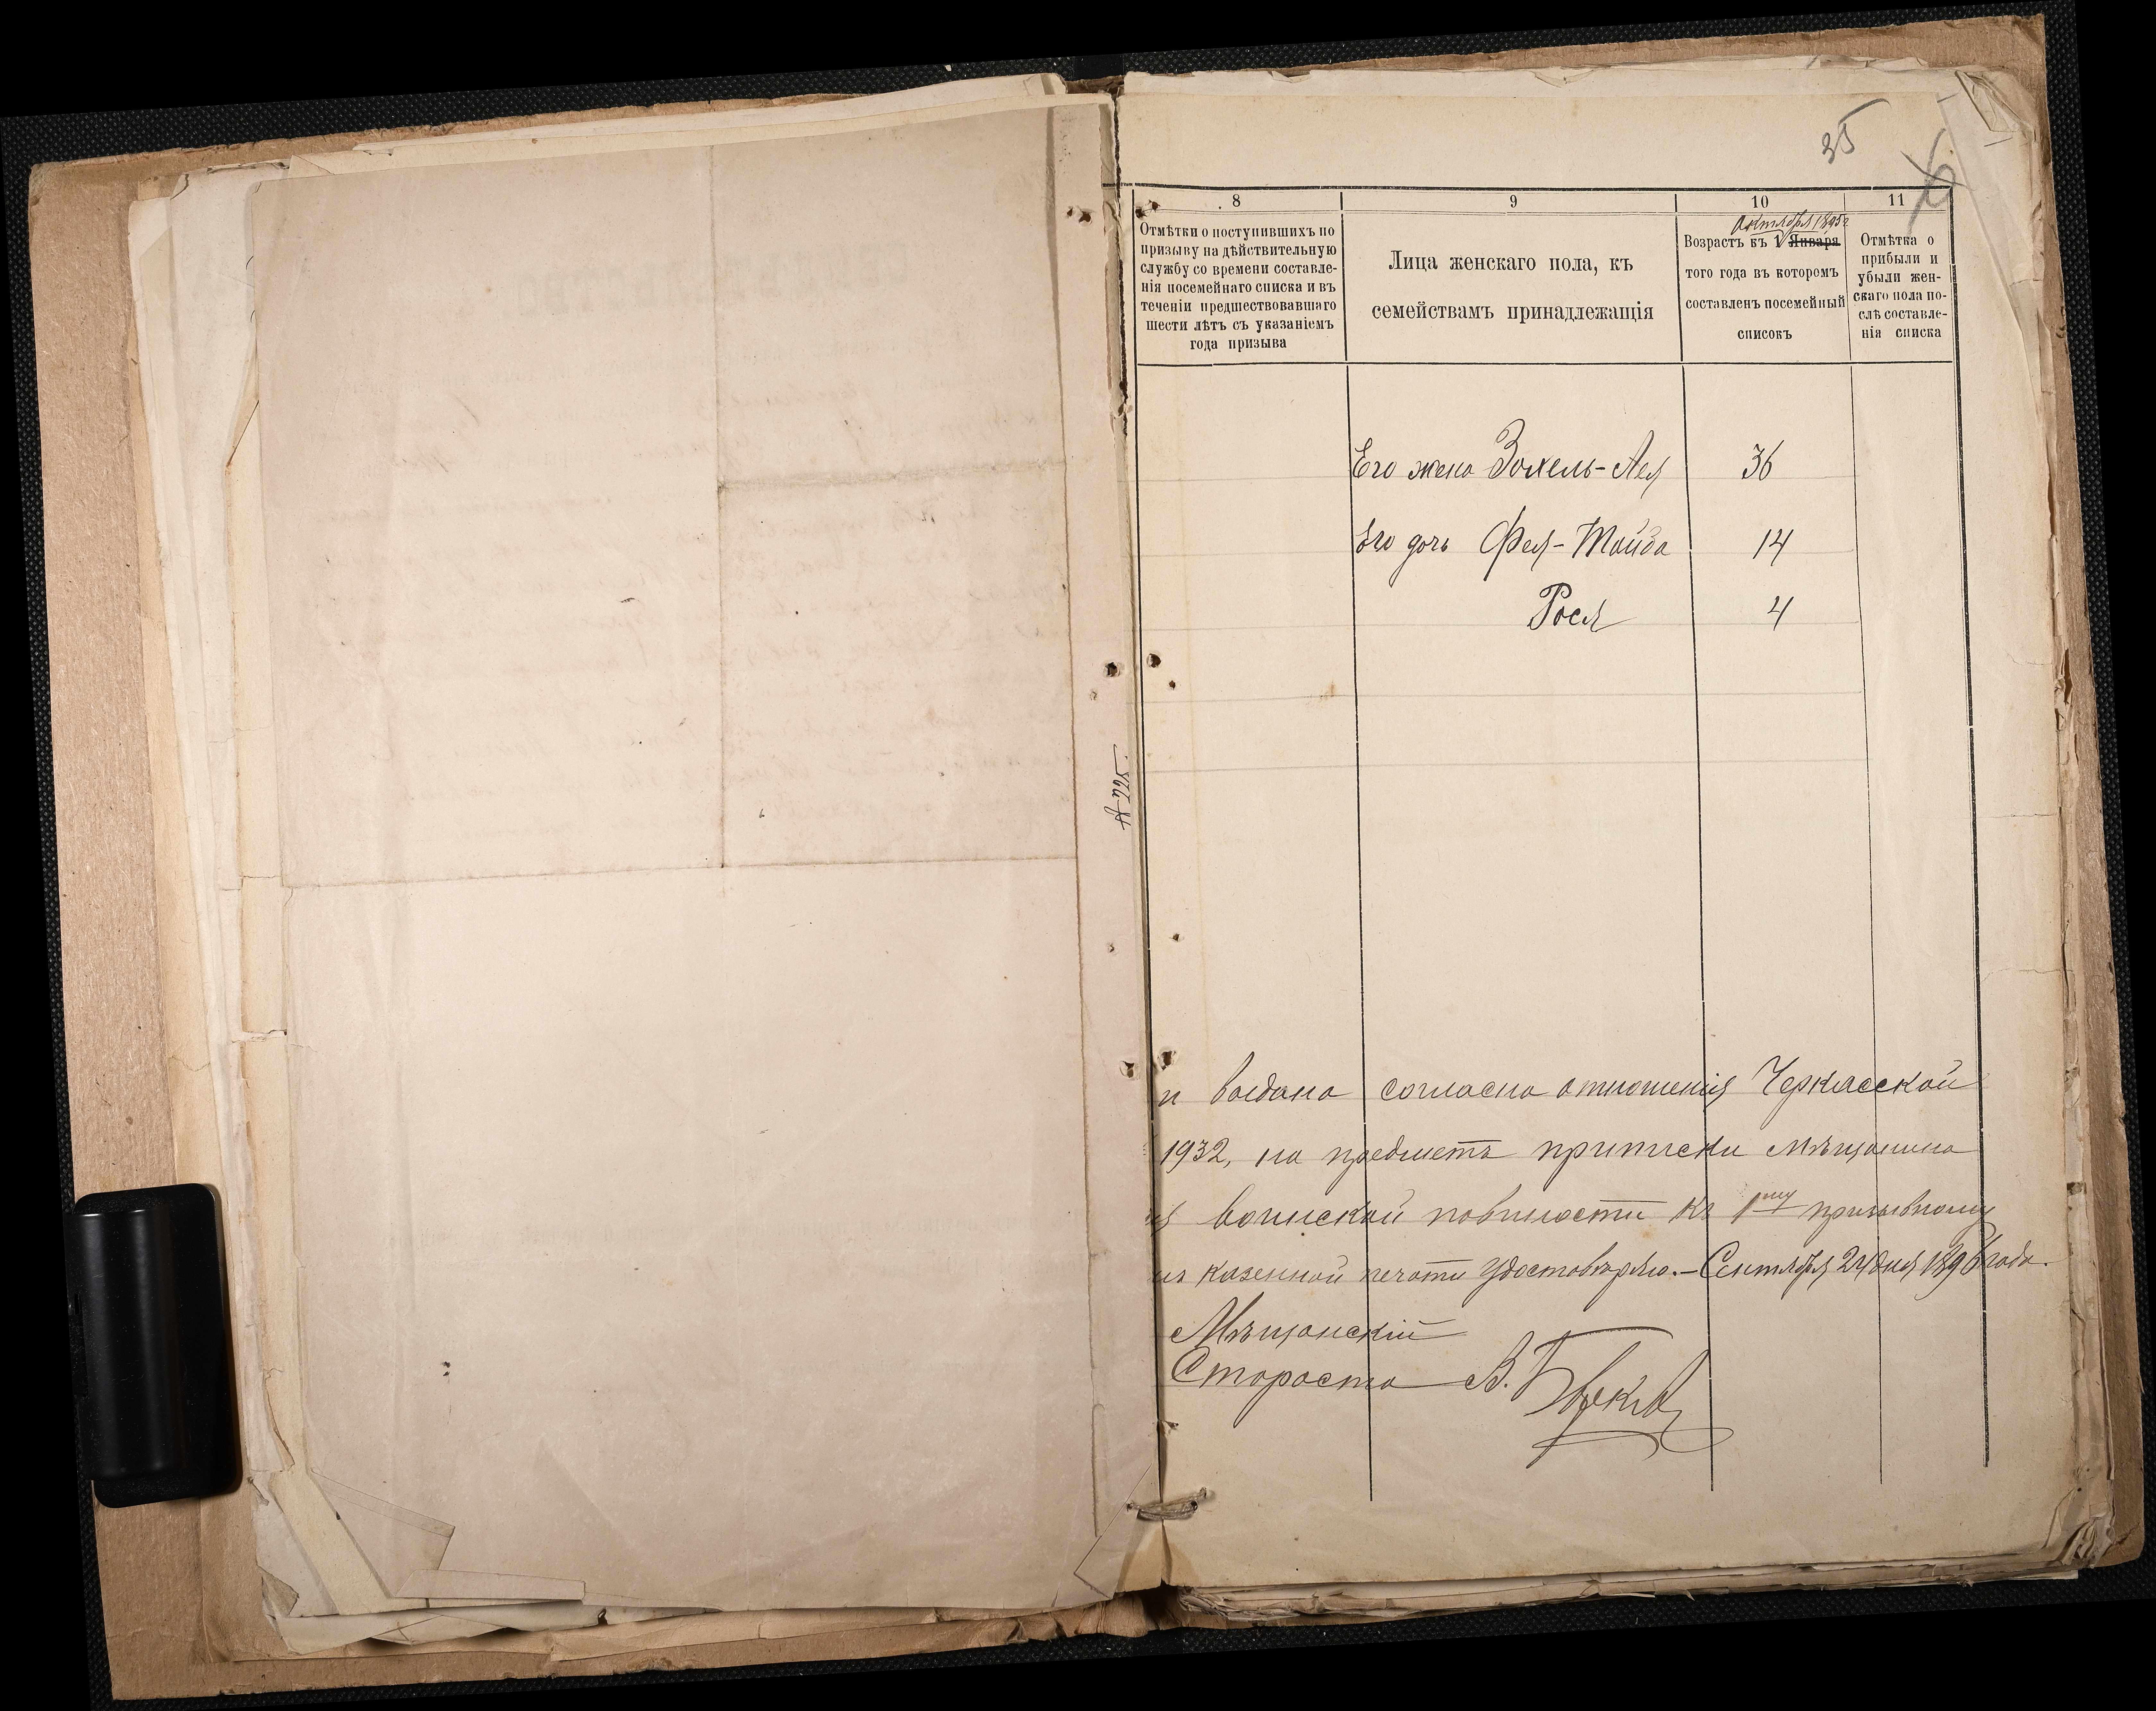 35
8
9
10
11
Отмѣтки о поступившихъ по
призыву на дѣйствительную
службу со времени составле-
нія посемейнаго списка и въ
теченіи предшествовавшаго
шести лѣтъ съ указаніемъ
года призыва
Лица женскаго пола, къ
семействамъ принадлежащія
Октября 1895 г
Возрастъ къ 1 Января
того года въ которомъ
составленъ посемейный
списокъ
Отмѣтка о
прибыли и
убыли жен-
скаго пола по-
слѣ составле-
нія списка
Его жена Зохель-Лея 36
Его дочь Фея-Тойба 14
Рося 4
225.
выдана согласно отношенія Черкасской
1932, на предметъ приписки мѣщанина
воинской повинности къ 1му призывному
казенной печати удостовѣряю. - Сентября 24 дня 1896 года.
Мѣщанскій
Староста В.